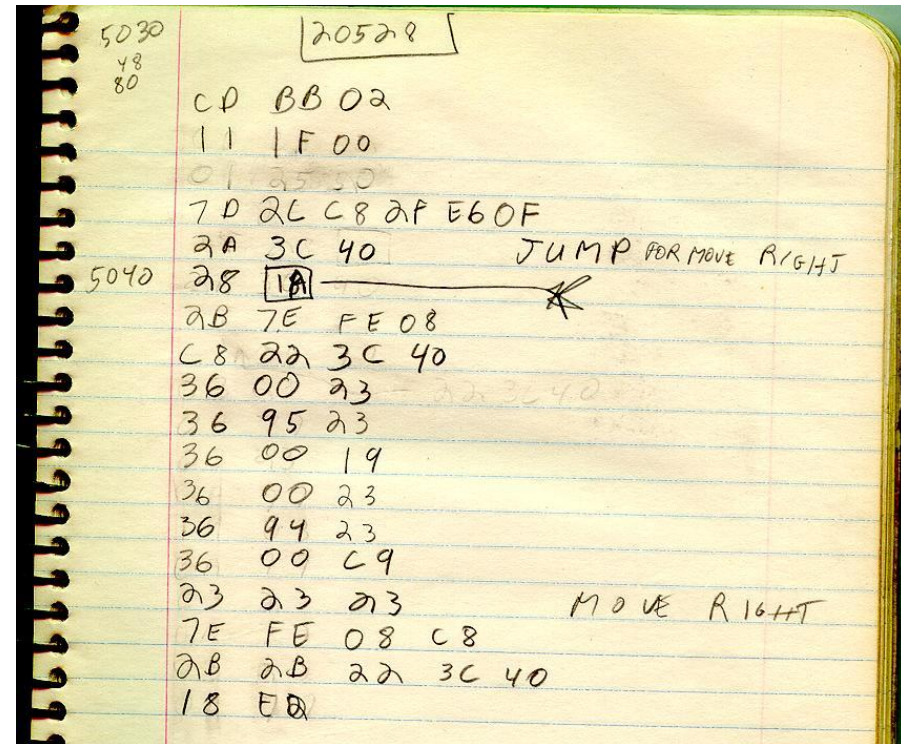 5030 20528
48
80
CD BB 02
11 1F 00
01 25 50
7D 2C C8 2F E6 0F
2A 3C 40 JUMP FOR MOVE RIGHT
5040 28 1A
2B 7E FE 08
C8 22 3C 40
36 00 23 22 3C 40
36 95 23
36 00 19
36 00 23
36 94 23
36 00 C9
23 23 23 MOVE RIGHT
7E FE 08 C8
2B 2B 22 3C 40
18